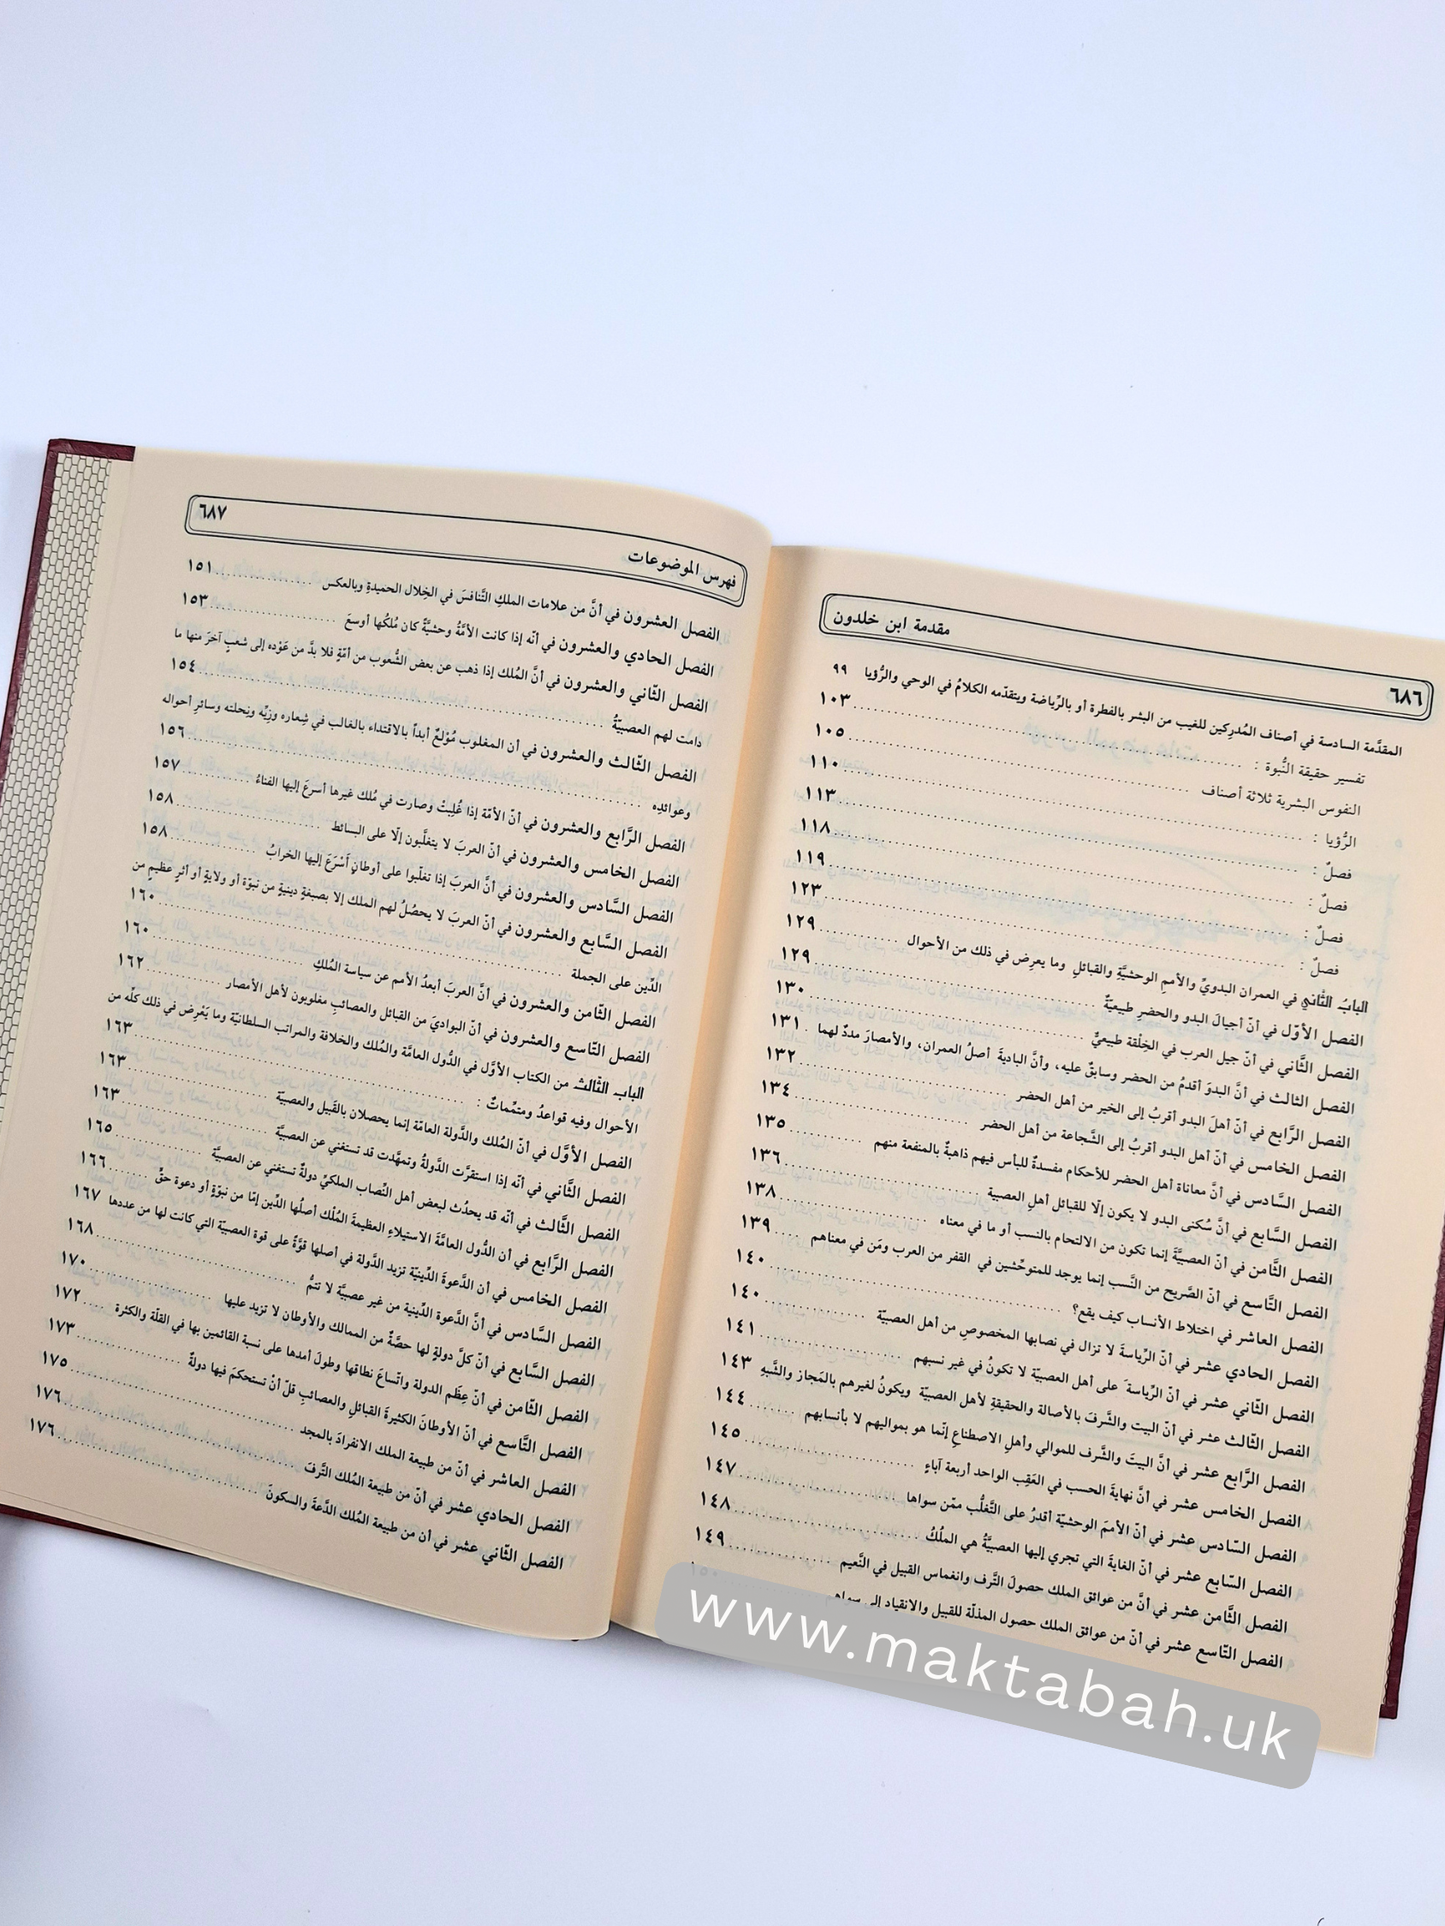 ٦٨٦ مقدمة ابن خلدون
المقدَّمة السادسة في أصناف المُدرِكين للغيب من البشر بالفطرة أو بالرِّياضة ويتقدّمه الكلامُ في الوحي والرُّؤيا ٩٩
تفسير حقيقة النُّبوة : ١٠٣
النفوس البشرية ثلاثة أصناف ١٠٥
الرُّؤيا : ١١٠
فصلٌ : ١١٣
فصلٌ : ١١٨
فصلٌ : ١١٩
فصلٌ : ١٢٣
البابُ الثَّاني في العمران البدويِّ والأممِ الوحشيَّةِ والقبائلِ وما يعرِض في ذلك من الأحوال ١٢٩
الفصل الأوّل في أنّ أجيالَ البدو والحضرِ طبيعيّةٌ ١٢٩
الفصل الثَّاني في أنّ جيل العرب في الخِلْقة طبيعيٌّ ١٣٠
الفصل الثالث في أنَّ البدوَ أقدمُ من الحضر وسابقٌ عليه، وأنَّ الباديةَ أصلُ العمران، والأمصارَ مددٌ لهما ١٣١
الفصل الرَّابع في أنّ أهلَ البدو أقربُ إلى الخير من أهل الحضر ١٣٢
الفصل الخامس في أنّ أهل البدو أقربُ إلى الشَّجاعة من أهل الحضر ١٣٤
الفصل السَّادس في أنَّ معاناة أهل الحضر للأحكام مفسدةٌ للبأس فيهم ذاهبةٌ بالمنفعة منهم ١٣٥
الفصل السَّابع في أنَّ سُكنى البدو لا يكون إلّا للقبائل أهلِ العصبية ١٣٦
الفصل الثَّامن في أنّ العصبيَّةَ إنما تكون من الالتحام بالنسب أو ما في معناه ١٣٨
الفصل التَّاسع في أنّ الصَّريح من النَّسب إنما يوجد للمتوحّشين في القفر من العرب ومَن في معناهم ١٣٩
الفصل العاشر في اختلاط الأنساب كيف يقع؟ ١٤٠
الفصل الحادي عشر في أنّ الرِّياسةَ لا تزال في نصابها المخصوصِ من أهل العصبيّة ١٤٠
الفصل الثّاني عشر في أنّ الرِّياسةَ على أهل العصبيّة لا تكونُ في غير نسبهم ١٤١
الفصل الثّالث عشر في أنّ البيت والشَّرفَ بالأصالة والحقيقةِ لأهل العصبيّة ويكونُ لغيرهم بالمَجاز والشَّبهِ ١٤٣
الفصل الرَّابع عشر في أنَّ البيتَ والشَّرف للموالي وأهلِ الاصطناعِ إنّما هو بمواليهم لا بأنسابهم ١٤٤
الفصل الخامس عشر في أنَّ نهايةَ الحسب في العَقِب الواحد أربعة آباءٍ ١٤٥
الفصل السّادس عشر في أنّ الأممَ الوحشيّة أقدرُ على التَّغلُّب ممّن سواها ١٤٧
الفصل السّابع عشر في أنّ الغايةَ التي تجري إليها العصبيَّةُ هي المُلْكُ ١٤٨
الفصل الثَّامن عشر في أنَّ من عوائق الملك حصولَ التَّرف وانغماس القبيل في النَّعيم ١٤٩
الفصل التّاسع عشر في أنّ من عوائق الملك حصول المذلّة للقبيل والانقياد إلى سواهم
فهرس الموضوعات ٦٨٧
الفصل العشرون في أنَّ من علامات الملكِ التَّنافسَ في الخِلال الحميدةِ وبالعكس ١٥١
الفصل الحادي والعشرون في أنّه إذا كانت الأمَّةُ وحشيَّةً كان مُلكُها أوسعَ ١٥٣
الفصل الثّاني والعشرون في أنَّ المُلك إذا ذهب عن بعض الشُّعوب من أمّةٍ فلا بدَّ من عَوْده إلى شعبٍ آخرَ منها ما
دامت لهم العصبيّةُ ١٥٤
الفصل الثّالث والعشرون في أن المغلوب مُوْلعٌ أبداً بالاقتداء بالغالب في شِعاره وزِيِّه ونِحلته وسائرِ أحواله
وعوائدِه ١٥٦
الفصل الرَّابع والعشرون في أنّ الأمّة إذا غُلِبتْ وصارت في مُلك غيرها أسرعَ إليها الفناءُ ١٥٧
الفصل الخامس والعشرون في أنّ العربَ لا يتغلَّبون إلّا على البسائط ١٥٨
الفصل السَّادس والعشرون في أنَّ العربَ إذا تغلّبوا على أوطانٍ أَسْرَعَ إليها الخرابُ ١٥٨
الفصل السَّابع والعشرون في أنّ العربَ لا يحصُلُ لهم الملك إلا بصبغةٍ دينيةٍ من نبوّة أو ولايةٍ أو أثرٍ عظيمٍ من
الدِّين على الجملة ١٦٠
الفصل الثّامن والعشرون في أنَّ العربَ أبعدُ الأمم عن سياسة المُلكِ ١٦٠
الفصل التّاسع والعشرون في أنّ البواديَ من القبائل والعصائبِ مغلوبون لأهل الأمصار ١٦٢
الباب الثّالث من الكتاب الأوَّل في الدُّول العامَّة والمُلك والخلافة والمراتب السلطانيّة وما يَعْرِض في ذلك كلّه من
الأحوال وفيه قواعدُ ومتمِّماتٌ : ١٦٣
الفصل الأوَّل في أنّ المُلك والدَّولة العامّة إنما يحصلان بالقَبيل والعصبيّة ١٦٣
الفصل الثَّاني في أنّه إذا استقرَّت الدَّولةُ وتمهَّدت قد تستغني عن العصبيَّة ١٦٣
الفصل الثَّالث في أنّه قد يحدُث لبعض أهل النِّصاب الملكيِّ دولةٌ تستغني عن العصبيَّة ١٦٥
الفصل الرَّابع في أن الدُّول العامَّةَ الاستيلاءِ العظيمةَ المُلْك أصلُها الدِّين إمّا من نبوّةٍ أو دعوة حقٍّ ١٦٦
الفصل الخامس في أن الدَّعوةَ الدِّينيّة تزيد الدَّولة في أصلها قوَّةً على قوة العصبيّة التي كانت لها من عددها ١٦٧
الفصل السَّادس في أنَّ الدَّعوة الدِّينية من غير عصبيَّة لا تتمُّ ١٦٨
الفصل السَّابع في أنّ كلَّ دولةٍ لها حصَّةٌ من الممالك والأوطان لا تزيد عليها ١٧٠
الفصل الثّامن في أنّ عِظَم الدولة واتّساعَ نطاقها وطولَ أمدها على نسبة القائمين بها في القلّة والكثرة ١٧٢
الفصل التَّاسع في أنّ الأوطانَ الكثيرةَ القبائلِ والعصائبِ قلّ أنْ تستحكمَ فيها دولةٌ ١٧٣
الفصل العاشر في أنّ من طبيعة الملك الانفرادَ بالمجد ١٧٥
الفصل الحادي عشر في أنّ من طبيعة المُلك التَّرفَ ١٧٦
الفصل الثّاني عشر في أن من طبيعة المُلك الدَّعةَ والسكونَ ١٧٦
www.maktabah.uk